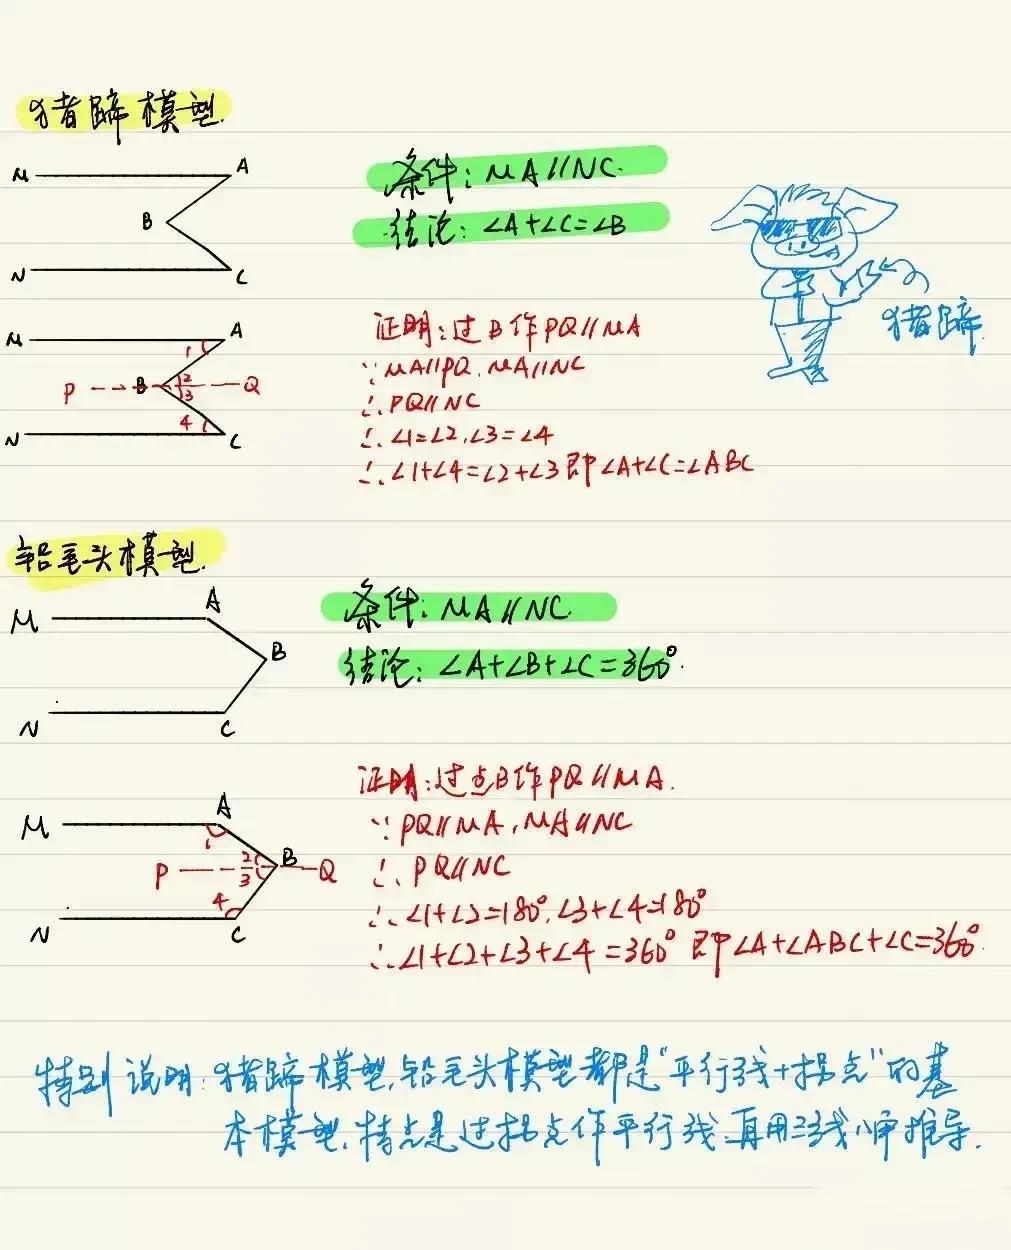 猪蹄模型.
M A
B
N C
条件: MA//NC.
结论: ∠A+∠C=∠B
猪蹄
M A
1
P B 2 Q
3
4
N C
证明: 过B作PQ//MA
∵MA//PQ. MA//NC
∴PQ//NC
∴∠1=∠2.∠3=∠4
∴∠1+∠4=∠2+∠3即∠A+∠C=∠ABC
铅笔头模型.
M A
B
N C
条件: MA//NC.
结论: ∠A+∠B+∠C=360°.
M A
1
P 2 B Q
3
4
N C
证明: 过点B作PQ//MA.
∵PQ//MA, MA//NC
∴PQ//NC
∴∠1+∠2=180°.∠3+∠4=180°
∴∠1+∠2+∠3+∠4=360° 即∠A+∠ABC+∠C=360°.
特别说明: 猪蹄模型,铅笔头模型都是"平行线+拐点"的基
本模型, 特点是过拐点作平行线,再用三线八角推导.